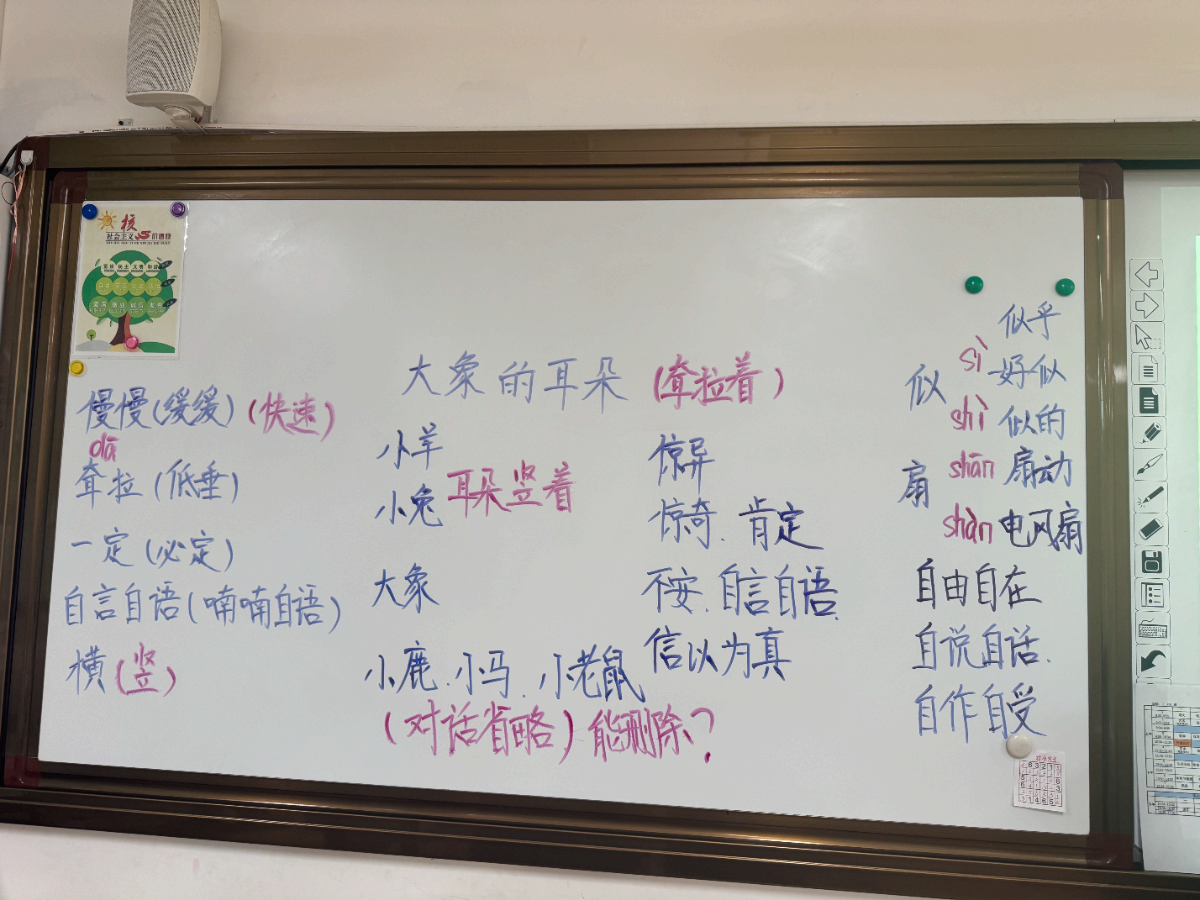 核
社会主义
大象的耳朵 (耷拉着)
慢慢(缓缓) (快速)
dā
耷拉 (低垂)
一定 (必定)
自言自语 (喃喃自语)
横 (竖)
小羊
小兔 耳朵竖着
大象
小鹿.小马.小老鼠
(对话省略) 能删除?
惊异
惊奇.肯定
不安.自言自语.
信以为真
似乎
似 sì 好似
shì 似的
扇 shān 扇动
shàn 电风扇
自由自在
自说自话.
自作自受